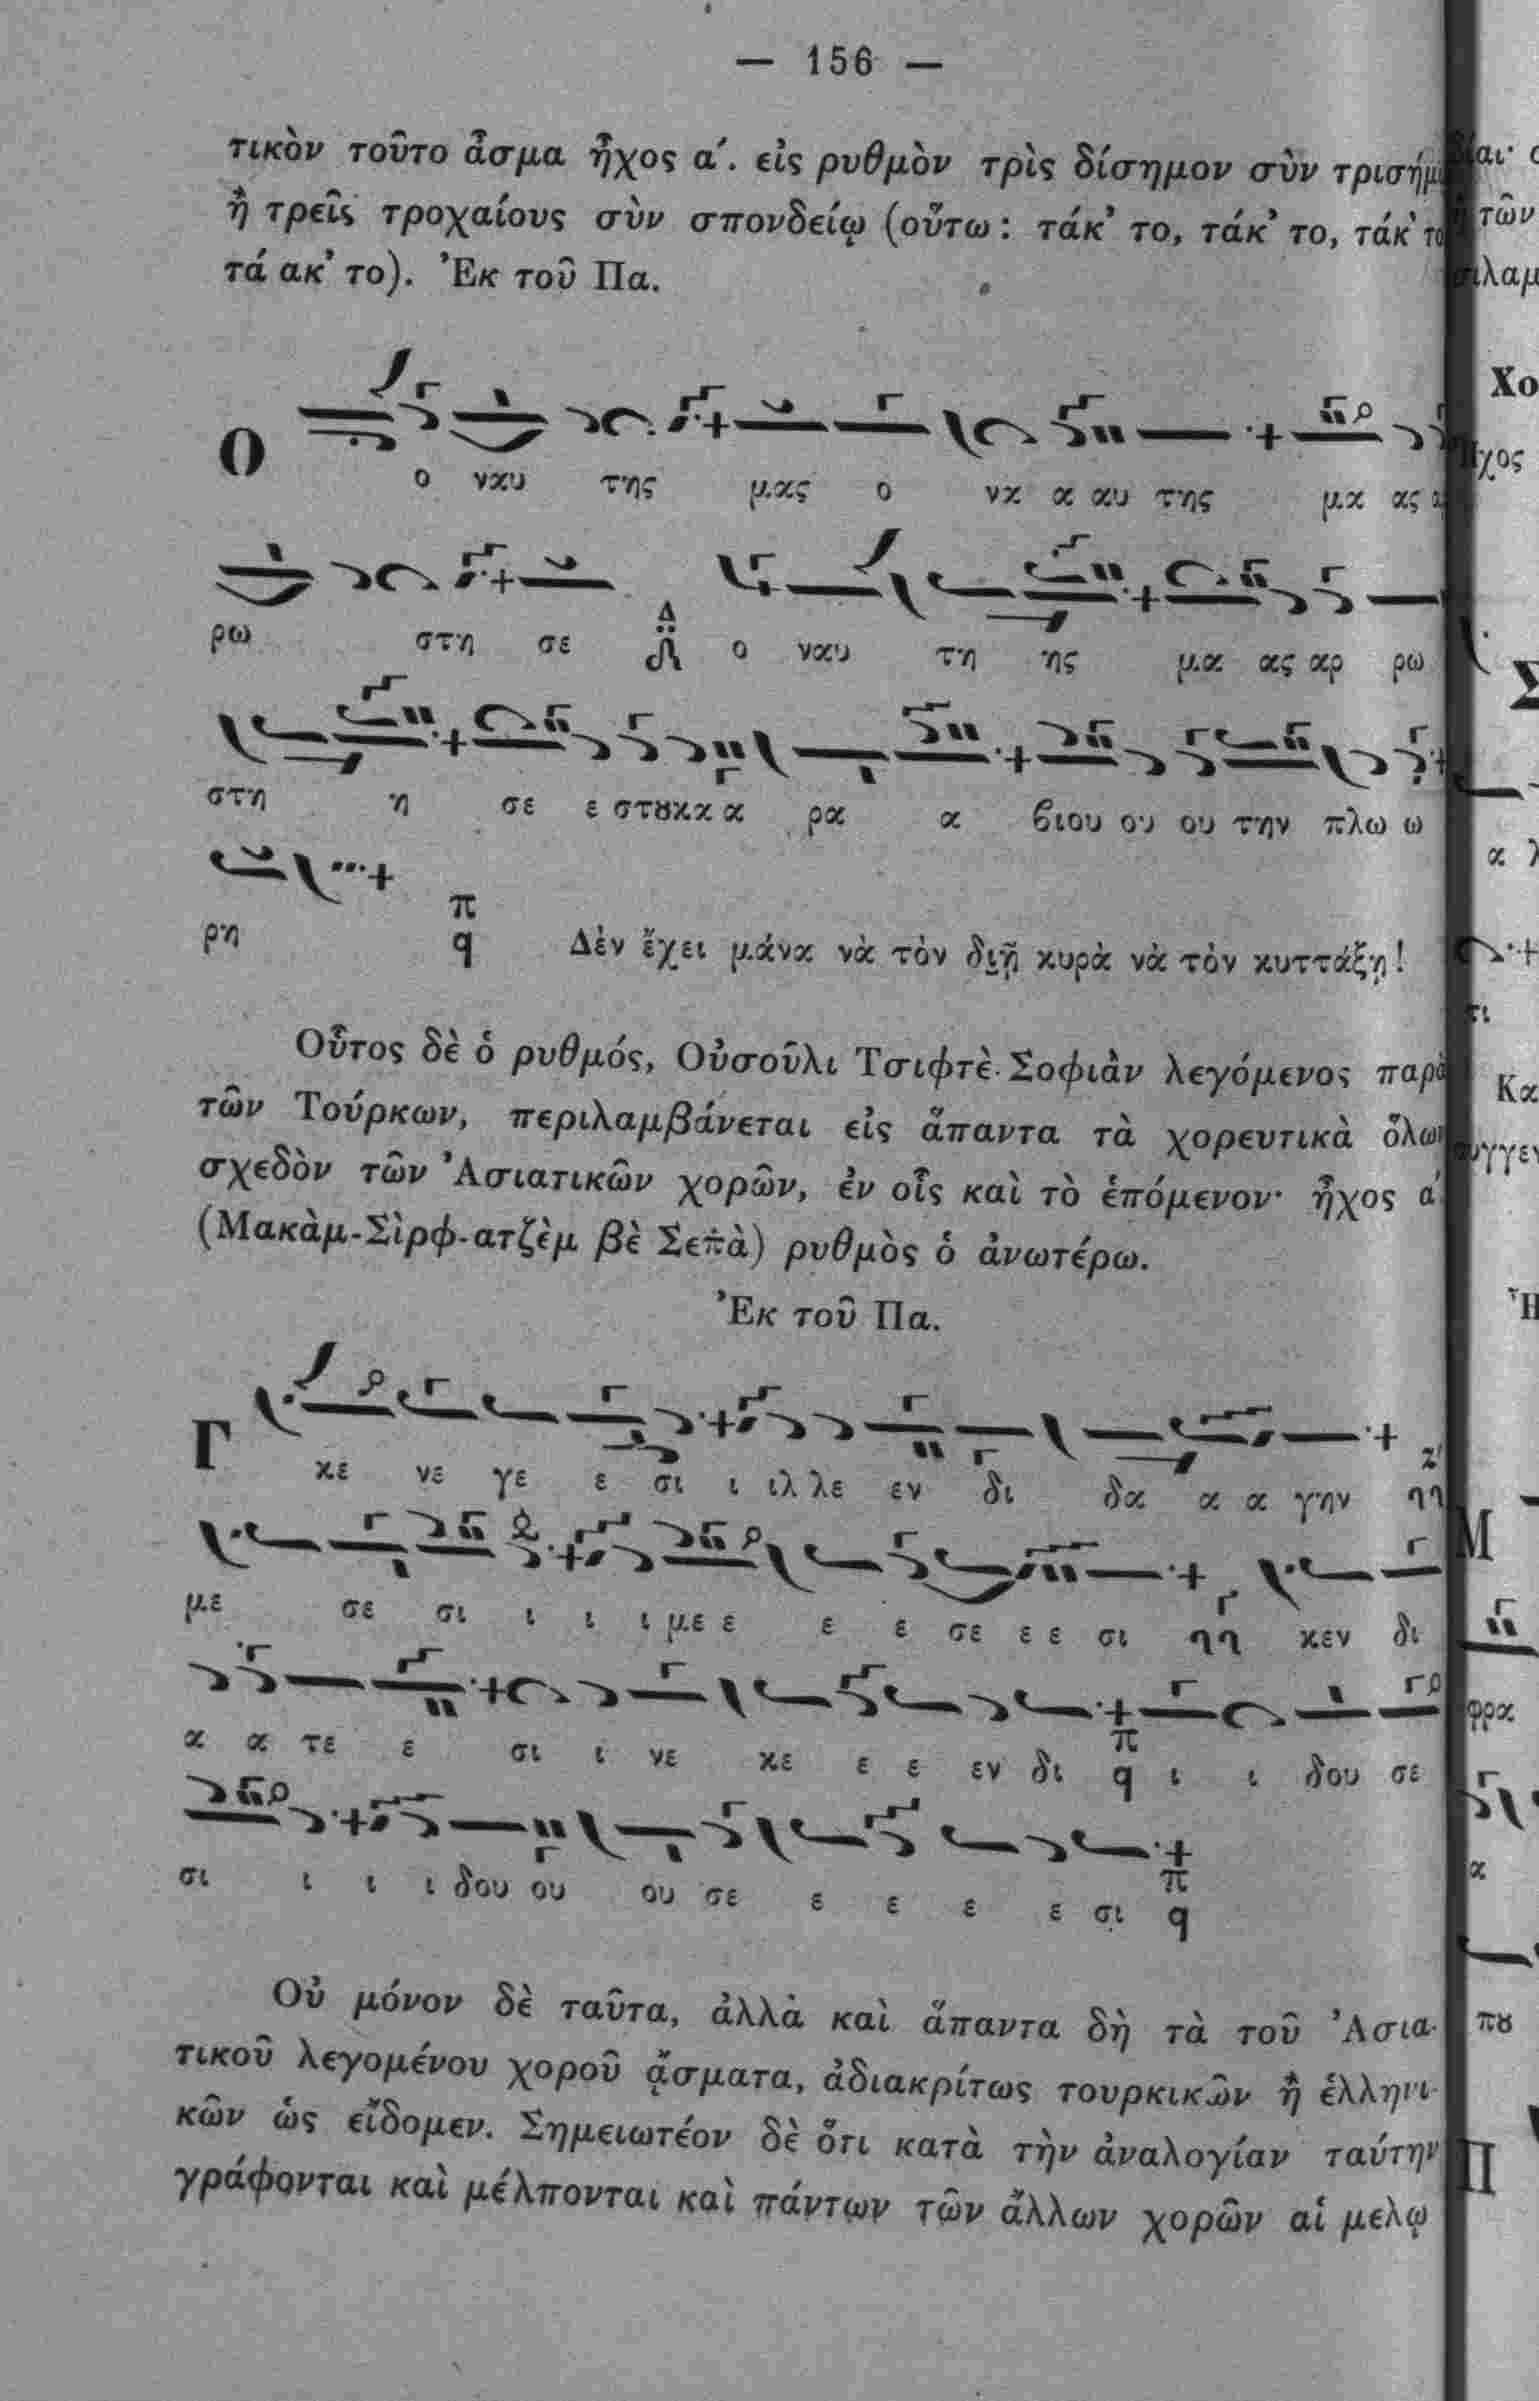 — 156 —
τικὸν τοῦτο ᾆσμα ἦχος α΄. εἰς ρυθμὸν τρὶς δίσημον σὺν
ἢ τρεῖς τροχαίους σὺν σπονδείῳ (οὕτω: τάκ’ το, τάκ’ το, τάκ’ το
τά ακ’ το). Ἐκ τοῦ Πα.
Ο ο ναυ της μας ο να α αυ της μα ας
ρω στη σε Δ ο ναυ τη ης μα ας αρ ρω
στη η σε ε στȣκα α ρα α βιου ου ου την πλω ω
ρη π q Δὲν ἔχει μάνα νὰ τὸν διῇ κυρὰ νὰ τὸν κυττάξῃ!
Οὗτος δὲ ὁ ρυθμός, Οὐσοῦλι Τσιφτὲ Σοφιὰν λεγόμενος παρὰ
τῶν Τούρκων, περιλαμβάνεται εἰς ἅπαντα τὰ χορευτικὰ ὅλων
σχεδὸν τῶν Ἀσιατικῶν χορῶν, ἐν οἷς καὶ τὸ ἑπόμενον· ἦχος α΄
(Μακὰμ-Σὶρφ-ατζὲμ βὲ Σεπὰ) ρυθμὸς ὁ ἀνωτέρω.
Ἐκ τοῦ Πα.
Γ κε νε γε ε σι ι ιλ λε εν δι δα α α γην
με σε σι ι ι ι με ε ε ε σε ε ε σι κεν δι
α α τε ε σι ι νε κε ε ε εν δι π q ι ι δου σε
σι ι ι ι δου ου ου σε ε ε ε ε σι π q
Οὐ μόνον δὲ ταῦτα, ἀλλὰ καὶ ἅπαντα δὴ τὰ τοῦ Ἀσια-
τικοῦ λεγομένου χοροῦ ᾄσματα, ἀδιακρίτως τουρκικῶν ἢ ἑλληνι-
κῶν ὡς εἴδομεν. Σημειωτέον δὲ ὅτι κατὰ τὴν ἀναλογίαν ταύτην
γράφονται καὶ μέλπονται καὶ πάντων τῶν ἄλλων χορῶν αἱ μελῳ